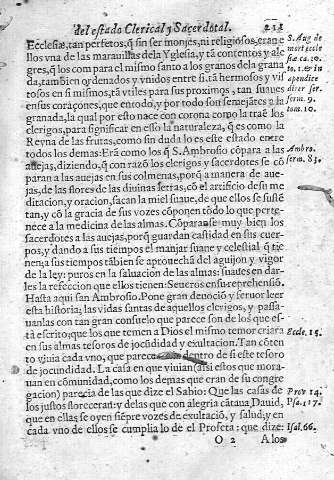 del estado Clerical, y Sacerdotal. 211
Ecclesiæ, tan perfetos, q̃ sin ser monjes, ni religiosos, eran e
llos vna de las marauillas dela Yglesia, y tã contentos y ale
gres, q̃ los com para el mismo santo a los granos dela grana
da, tambien ordenados y vnidos entre si. tã hermosos y vis
tosos en si mismos, tã vtiles para sus proximos, tan suaues
en sus coraçones, que en todo, y por todo son semejãtes y la
granada, la qual por esto nace con corona como la traẽ los
clerigos, para significar en esso la naturaleza, q̃ es como la
Reyna de las frutas, como sin duda lo es este estado entre
todos los demas. Erã como los q̃ S. Ambrosio cõpara a las
auejas, diziendo, q̃ con razõ los clerigos y sacerdotes se cõ
paran a las auejas en sus colmenas, porq̃ a manera de aue-
jas, de las flores de las diuinas letras, cõ el artificio de su me
ditacion, y oracion, sacan la miel suaue, de que ellos se susten
tan, y cõ la gracia de sus vozes cõponen todo lo que perte-
nece a la medicina de las almas. Cõparanse muy bien los
sacerdotes a las auejas, porq̃ guardan castidad en sus cuer-
pos, y dando a sus tiempos el manjar suaue y celestial q̃ tie
nen: a sus tiempos tãbien se aprouechã del aguijon y vigor
de la ley: puros en la saluacion de las almas: suaues en dar-
les la refeccion que ellos tienen: Seueros en su reprehensiõ.
Hasta aqui san Ambrosio. Pone gran deuociõ y feruor leer
esta historia; las vidas santas de aquellos clerigos, y passa-
uanlas con tan gran consuelo que parece son de los que es-
tà escrito; que los que temen a Dios el mismo temor criara
en sus almas tesoros de jocundidad y exultacion. Tan côten
to viuia cada vno, que parece dentro de si este tesoro
de jocundidad. La casa en que viuian (assi estos que mora-
uan en comunidad, como los demas que eran de su congre-
gacion) parecia de las que dize el Sabio: Que las casas de
los justos floreceran: y delas que con alegria cãtaua Dauid,
que en ellas se oyen siẽpre vozes de exultaciõ, y salud; y en
cada vno de ellos se cumplia lo de el Profeta: que dize:
O 2 A los
S. Aug de
mor. eccle
siæ ca. 10.
to. 1. & in
apendice
diver. ser
serm. 9.
tom. 10.
Ambro.
serm. 83.
Eccle. 15.
Prov 14.
Psa. 117.
Isai. 66.